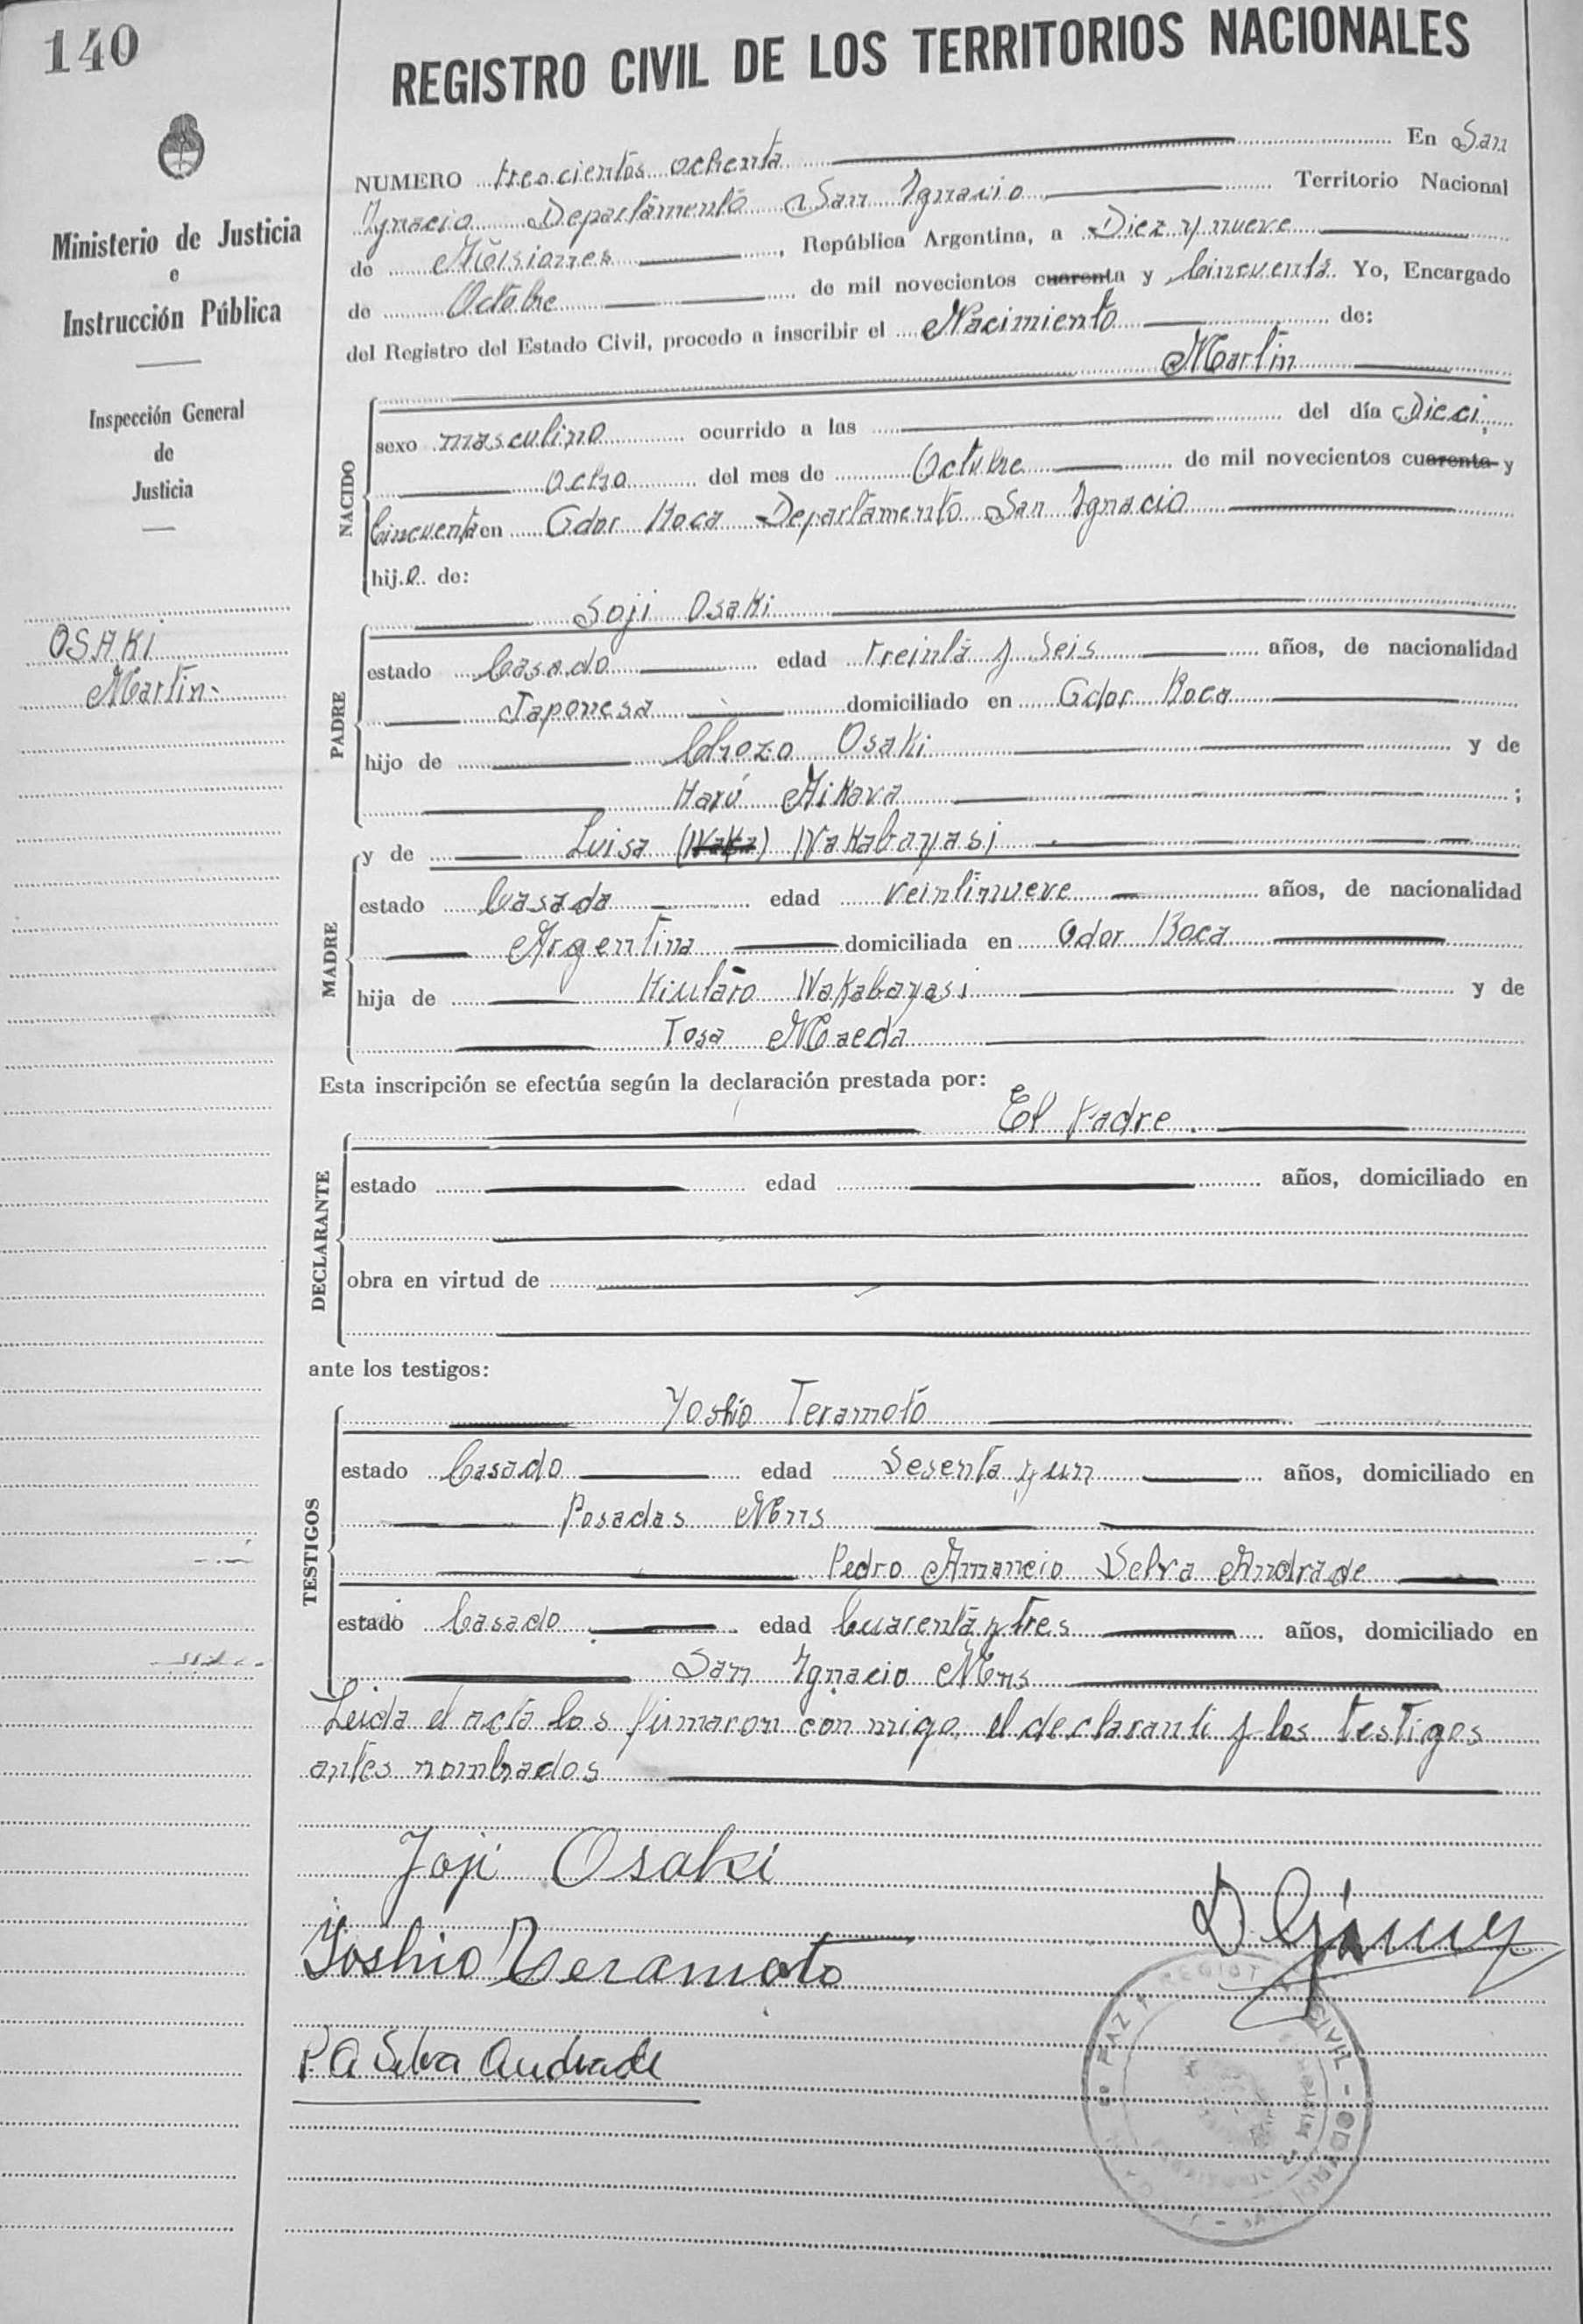 140
REGISTRO CIVIL DE LOS TERRITORIOS NACIONALES
Ministerio de Justicia
e
Instrucción Pública
Inspección General
de
Justicia
OSAKI
Martin
NUMERO trescientos ochenta En San
Ignacio Departamento San Ignacio Territorio Nacional
de Misiones, República Argentina, a Diez y nueve
de Octubre de mil novecientos cuarenta y Cincuenta Yo, Encargado
del Registro del Estado Civil, procedo a inscribir el Nacimiento de:
Martin
NACIDO
sexo masculino ocurrido a las del día Dieci
ocho del mes de Octubre de mil novecientos cuarenta y
Cincuenta en Gdor Roca Departamento San Ignacio
hijo de:
PADRE
Soji Osaki
estado Casado edad treinta y seis años, de nacionalidad
Japonesa domiciliado en Gdor Roca
hijo de Chozo Osaki y de
Harú Mikava ;
MADRE
y de Luisa (Waka) Wakabayasi
estado Casada edad veintinueve años, de nacionalidad
Argentina domiciliada en Gdor Roca
hija de Wakabayasi y de
Tosa Maeda
Esta inscripción se efectúa según la declaración prestada por:
DECLARANTE
El Padre.
estado edad años, domiciliado en
obra en virtud de
ante los testigos:
TESTIGOS
Yoshio Teramoto
estado Casado edad Sesenta y un años, domiciliado en
Posadas Mnes
Pedro Amancio Selva Andrade
estado Casado edad Cuarenta y tres años, domiciliado en
San Ignacio Mnes
Leida el acta los firmaron con migo el declarante y los testigos
antes nombrados
Joji Osaki
Yoshio Teramoto
P A Selva Andrade
PAZ Y REGIST CIVIL